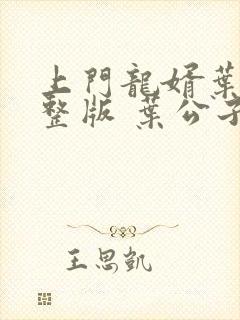 上門龍婿葉
整版 葉公子
王思凱